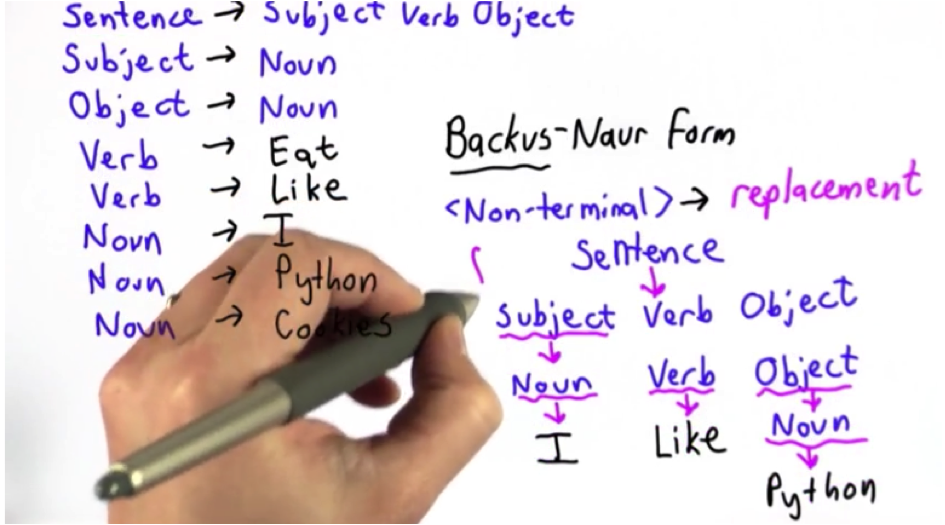 Sentence → Subject Verb Object
Subject → Noun
Object → Noun
Verb → Eat
Verb → Like
Noun → I
Noun → Python
Noun → Cookies
Backus-Naur Form
<Non-terminal> → replacement
Sentence
Subject Verb Object
Noun Verb Object
I Like Noun
Python